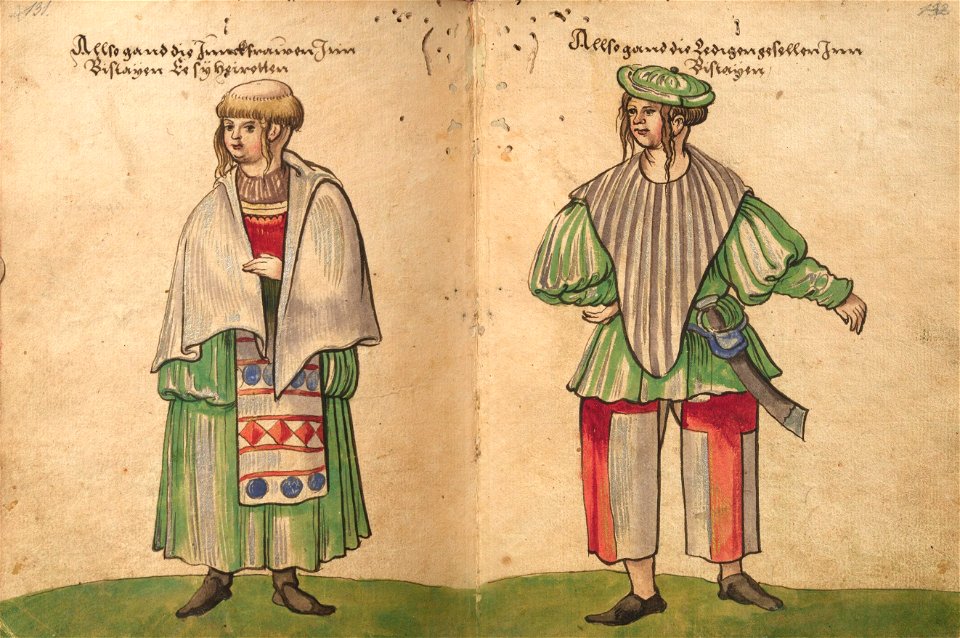 131.
Allso gand die Junckfrawen Jnn
Biscayen Ee sy heiratten
132
Allso gand die Ledigen gesellen Jnn
Biscayen